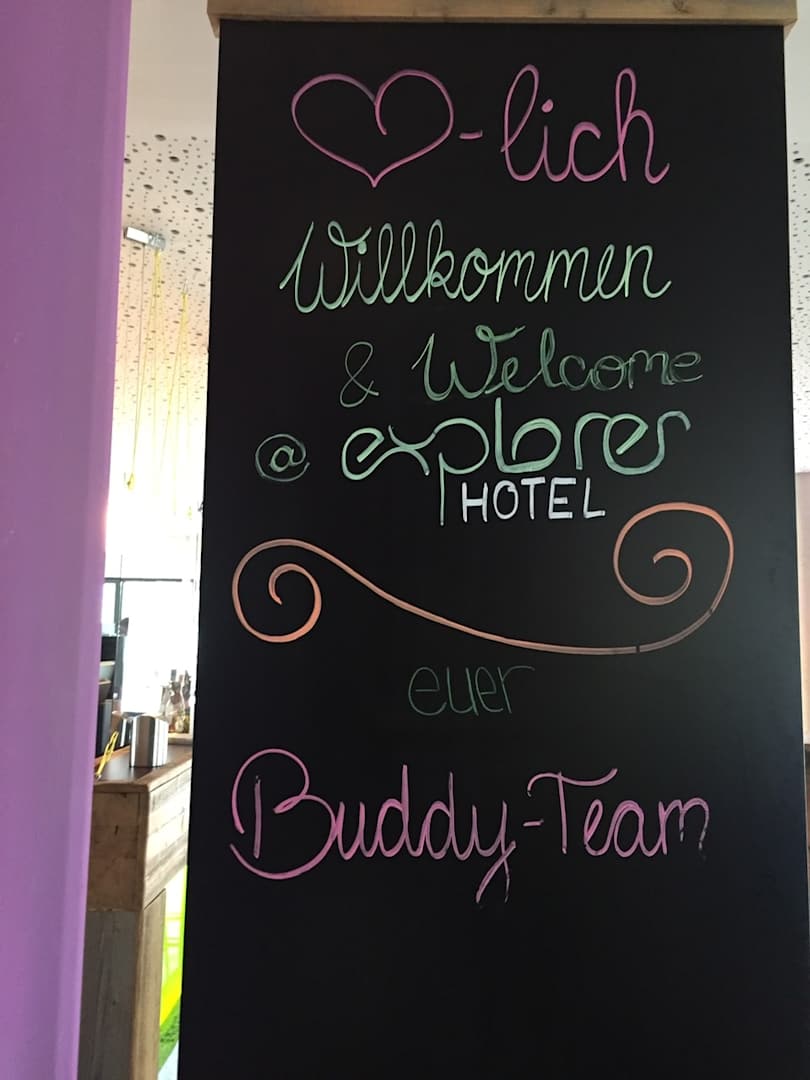 ♡-lich
Willkommen
& Welcome
@ explorer
HOTEL
euer
Buddy-Team